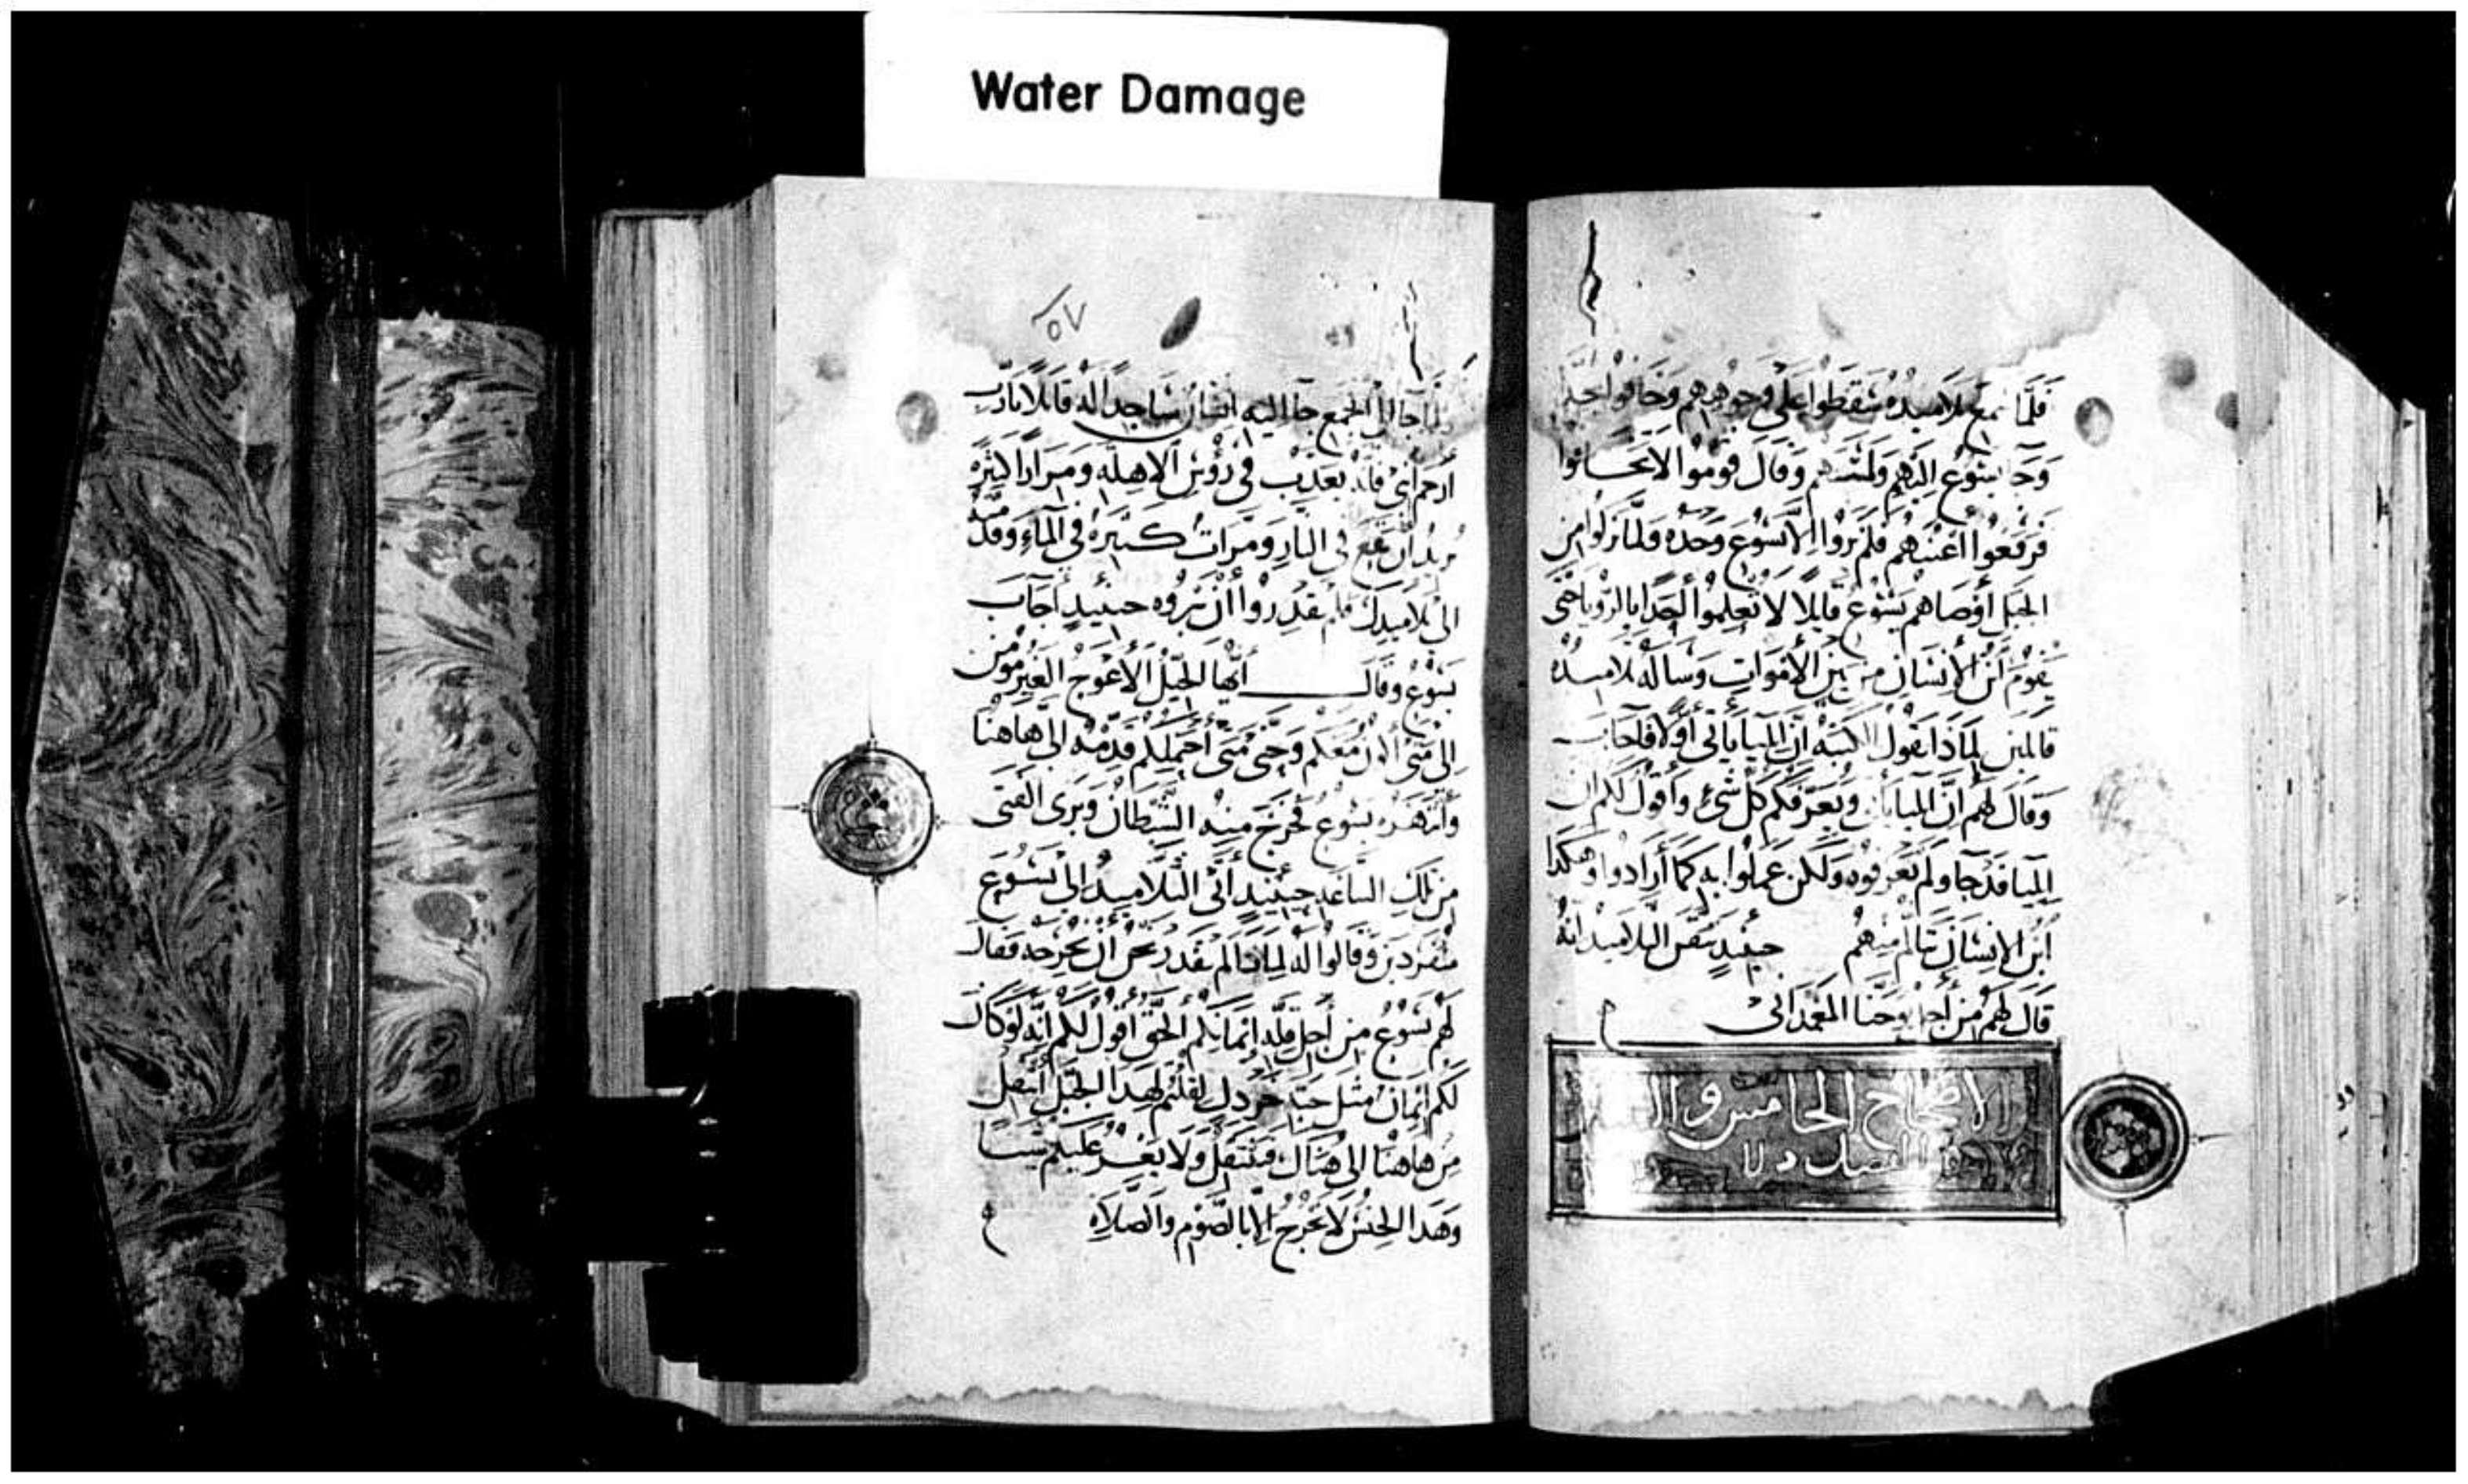 Water Damage
فلما سمع تلاميذه سقطوا على وجوههم وخافوا جدا
وجا يسوع اليهم ولمسهم وقال قوموا لا تخافوا
فرفعوا اعينهم فلم يروا الا يسوع وحده ولما نزلوا من
الجبل أوصاهم يسوع قايلا لا تعلموا أحدا بالرويا حتى
يقوم ابن الانسان من بين الأموات وساله تلاميذه
قايلين لماذا تقول الكتبه أن ايليا ياتى أولا فأجاب
وقال لهم ان ايليا ياتى ويعرفكم كل شى وأقول لكم ان
ايليا قد جا ولم يعرفوه ولكن عملوا به كما أرادوا وهكدا
ابن الانسان يتألم منهم حينيد تيقن التلاميد انه
قال لهم من أجل يوحنا المعمدانى
الاصحاح الخامس و
الفصل
٥٧
ولما جا الى الجمع جا اليه انسان ساجدا له قايلا يارب
أرحم ابنى فانه يعذب فى رؤس الاهله ومرارا كثيره
يريد ان يقع فى النار ومرات كثيره فى الماء وقد
قدمته
الى تلاميدك فلم يقدروا أن يبروه حينيد أجاب
يسوع وقال أيها الجيل الأعوج الغير مومن
إلى متى أكون معكم وحتى متى أحتملكم قدمه إلى هاهنا
وأنتهره يسوع فخرج منه الشيطان وبرى الفتى
من تلك الساعه حينيد أتى التلاميد إلى يسوع
منفردين وقالوا له لماذا لم نقدر نحن ان نخرجه فقال
لهم يسوع من أجل قلة إيمانكم الحق أقول لكم إنه لو كان
لكم إيمان مثل حبة خردل لقلتم لهدا الجبل أنتقل
من هاهنا إلى هناك فينتقل ولا يعسر عليكم شيا
وهدا الجنس لا يخرج إلا بالصوم والصلاة